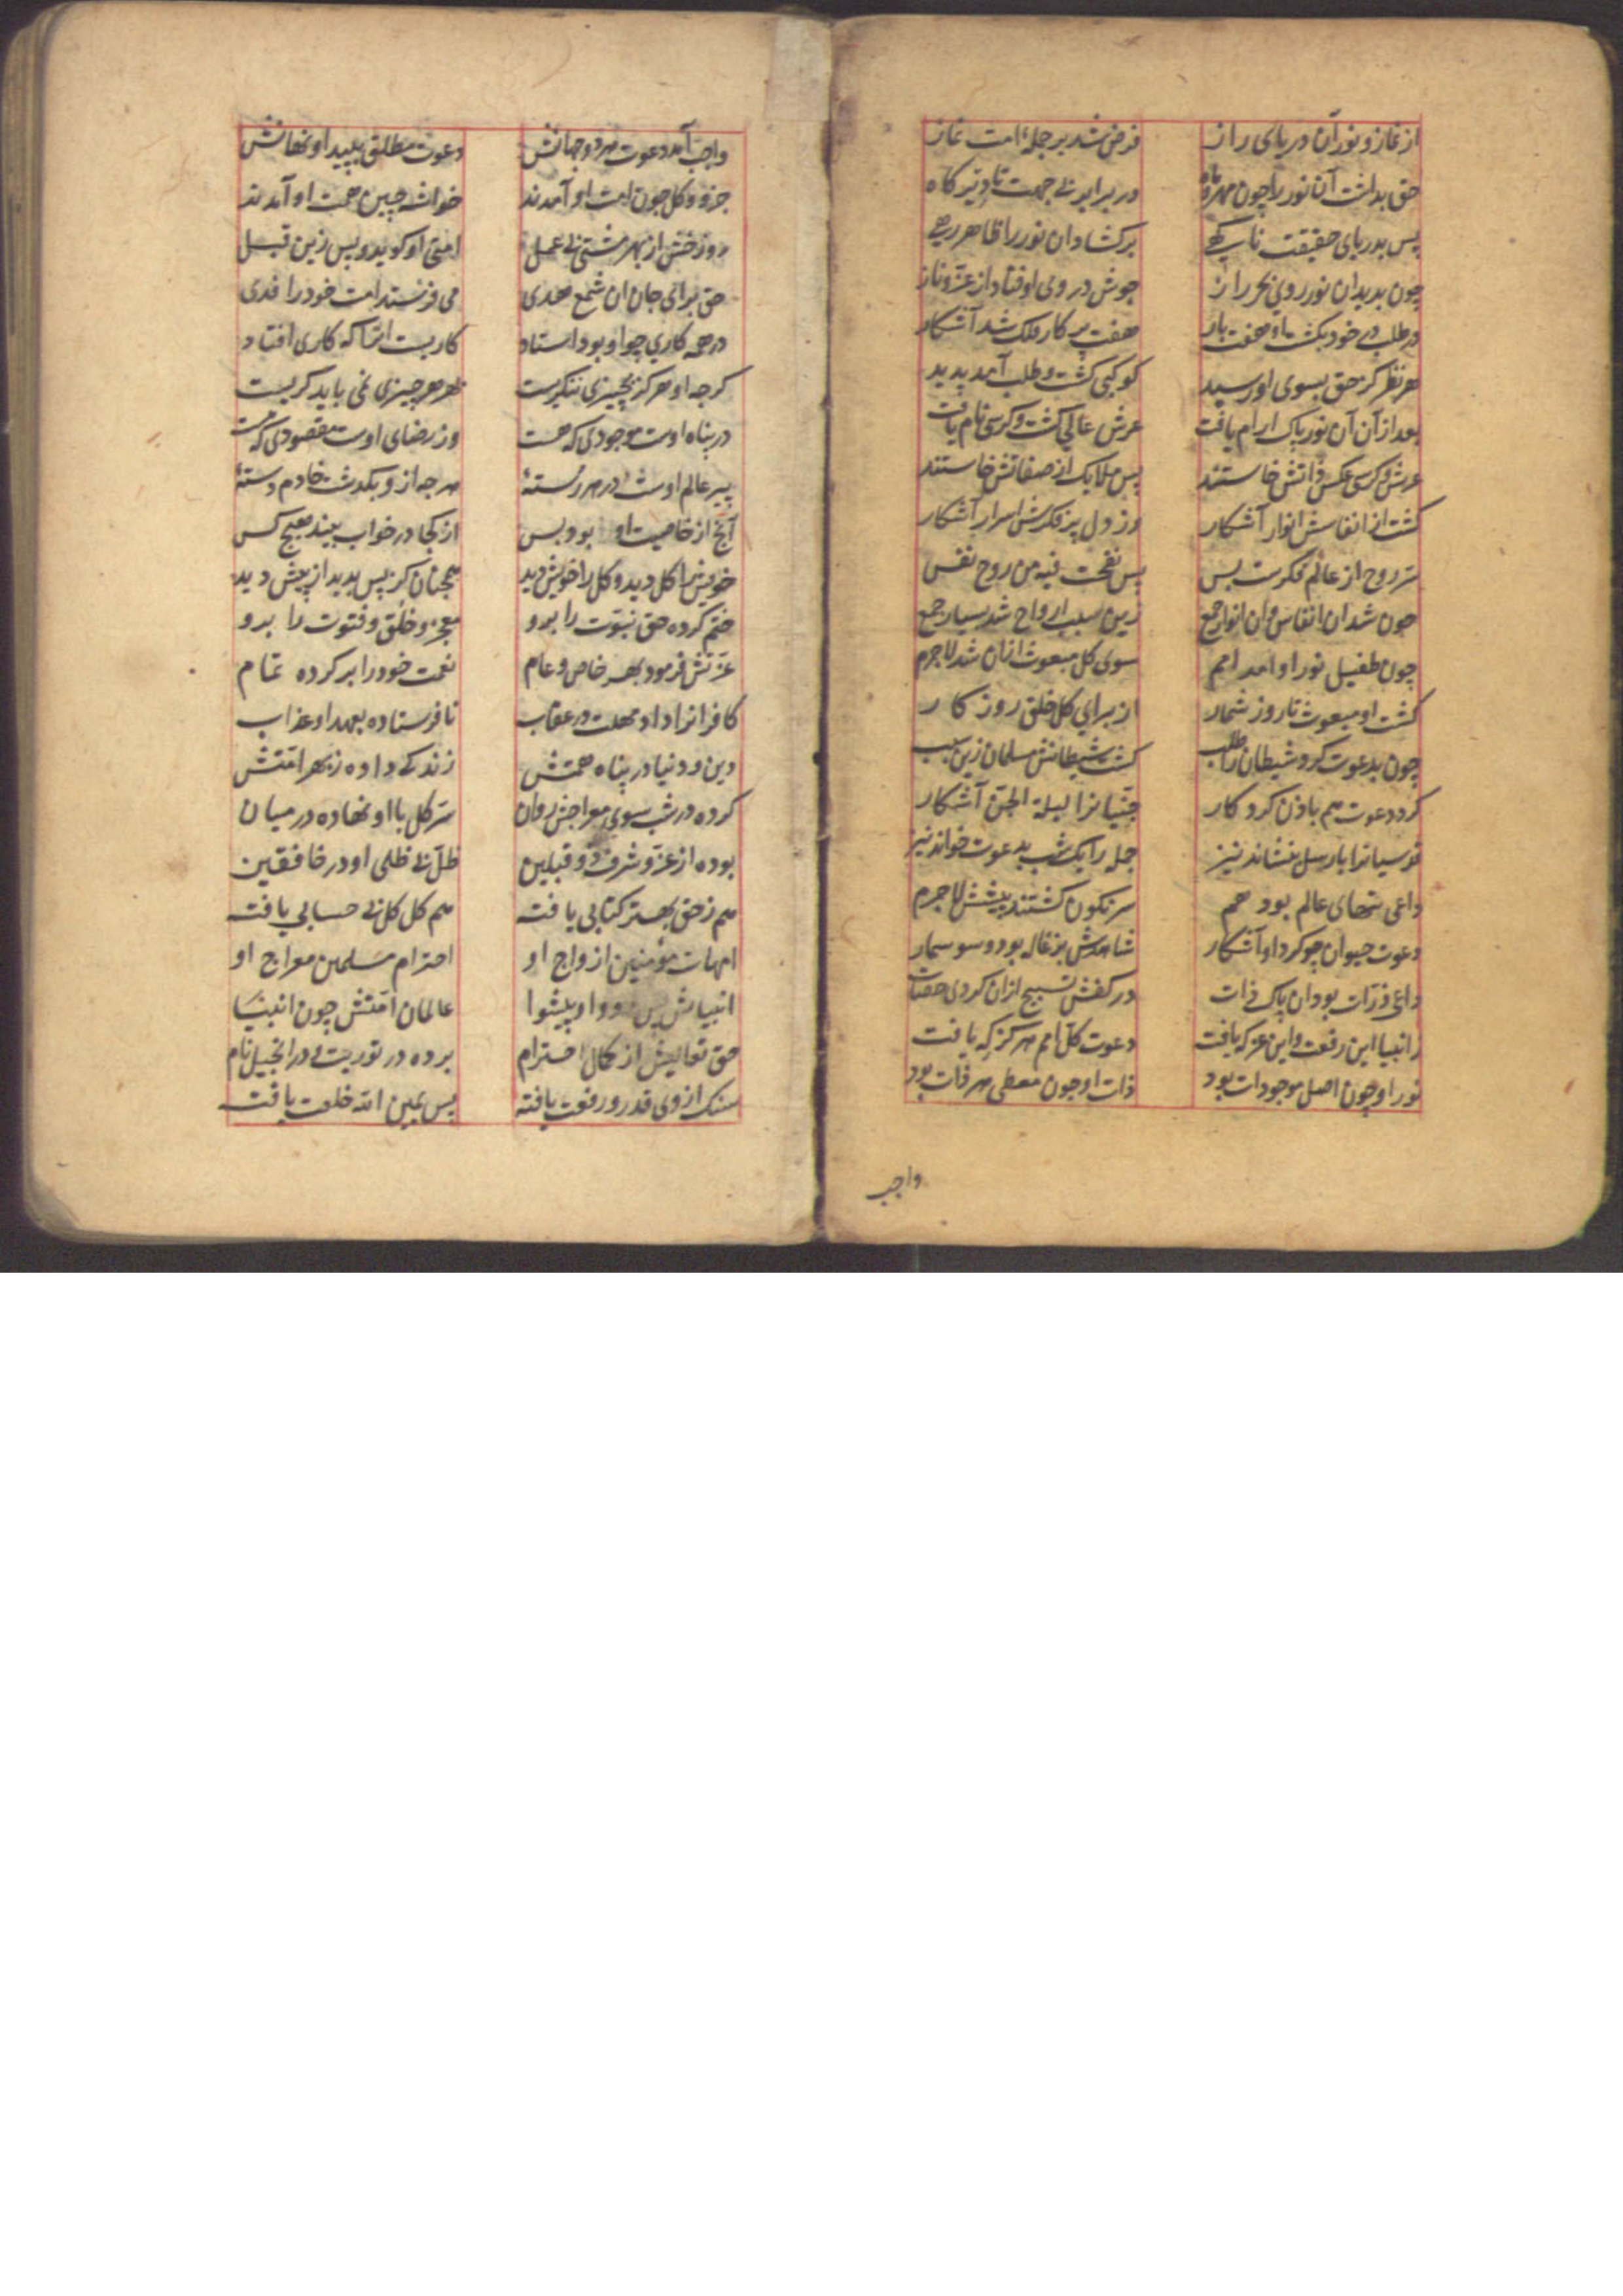 از نماز و نور آن دریای راز فرض شد بر جملهٔ امت نماز
حق بداشت آن نور را چون مهر و ماه در برابر بی جهت تا دیر کاه
پس بدریای حقیقت ناکهی برکشاد ان نور را ظاهر رهی
چون بدید ان نور روی بحر راز جوش در وی اوفتاد از عز و ناز
در طلب بر خود بکشت او هفت بار هفت پرکار فلک شد آشکار
هر نظر کز حق بسوی او رسید کوکبی کشت و طلب آمد پدید
بعد از آن آن نور پاک ارام یافت عرش عالی کشت و کرسی نام یافت
عرش و کرسی عکس ذاتش خاستند پس ملایک از صفاتش خاستند
کشت از انفاسش انوار آشکار وز دل پر فکرش اسرار آشکار
سر روح از عالم فکرت بس پس نفخت فیه من روح نفس
چون شد ان انفاس و ان انوار جمع زین سبب ارواح شد بسیار جمع
چون طفیل نور او امد امم سوی کل مبعوث ازان شد لاجرم
کشت او مبعوث تا روز شمار از برای کل خلق روز کار
چون بدعوت کرد شیطان را طلب کشت شیطانش مسلمان زین سبب
کرد دعوت هم باذن کردکار جنیانرا لیلة الجن آشکار
قدسیانرا با رسل بنشاند نیز جمله را یک شب بدعوت خواند نیز
داعی بتهای عالم بود هم سرنکون کشتند پیشش لاجرم
دعوت حیوان چو کرد او آشکار شاهدش بزغاله بود و سوسمار
داعی ذرات بود ان پاک ذات در کفش تسبیح ازان کردی حصات
ز انبیا این رفعت و این عز که یافت دعوت کل امم هرکز که یافت
نور او چون اصل موجودات بود ذات او چون معطی هر ذات بود
واجب
واجب آمد دعوت هر دو جهانش دعوت مطلق پدید او نهانش
جزو و کل چون امت او آمدند خوشه چین همت او آمدند
روز خشش از بهر مشتی بی عمل امتی او کوید و پس زین قبل
حق برای جان ان شمع هدی می فرستد امت خود را فدی
در همه کاری چو او بود استاد کار بست انراکه کاری افتاد
کرچه او هرکز بچیزی ننکریست بهر هر چیزی نمی باید کریست
در پناه اوست موجودی که هست وز رضای اوست مقصودی که هست
پیر عالم اوست در هر رستهٔ هرچه از وی بکذشت خادم دستهٔ
آنچ از خاصیت او بود و بس از کجا در خواب بیند هیچ کس
خویش را کل دید و کل را خویش دید همچنان کز پس بدید از پیش دید
ختم کرده حق نبوت را برو معجز و خلق و فتوت را برو
عزتش فرمود بهر خاص و عام نعمت خود را برو کرده تمام
کافرانرا داد مهلت در عقاب نافرستاده بعهد او عذاب
دین و دنیا در پناه همتش زندکی داده ز بهر امتش
کرده در شب سوی معراجش روان سر کل با او نهاده در میان
بوده از عز و شرف ذو قبلتین ظل بی ظلی او در خافقین
هم ز حق بهتر کتابی یافته هم کل کل بی حسابی یافته
امهات مؤمنین ازواج او احترام مسلمین معراج او
انبیا پس رو و او پیشوا عالمان امتش چون انبیا
حق تعالیش از کمال احترام برده در توریت و در انجیل نام
سنک از وی قدر و رفعت یافته پس یمین الله خلعت یافته